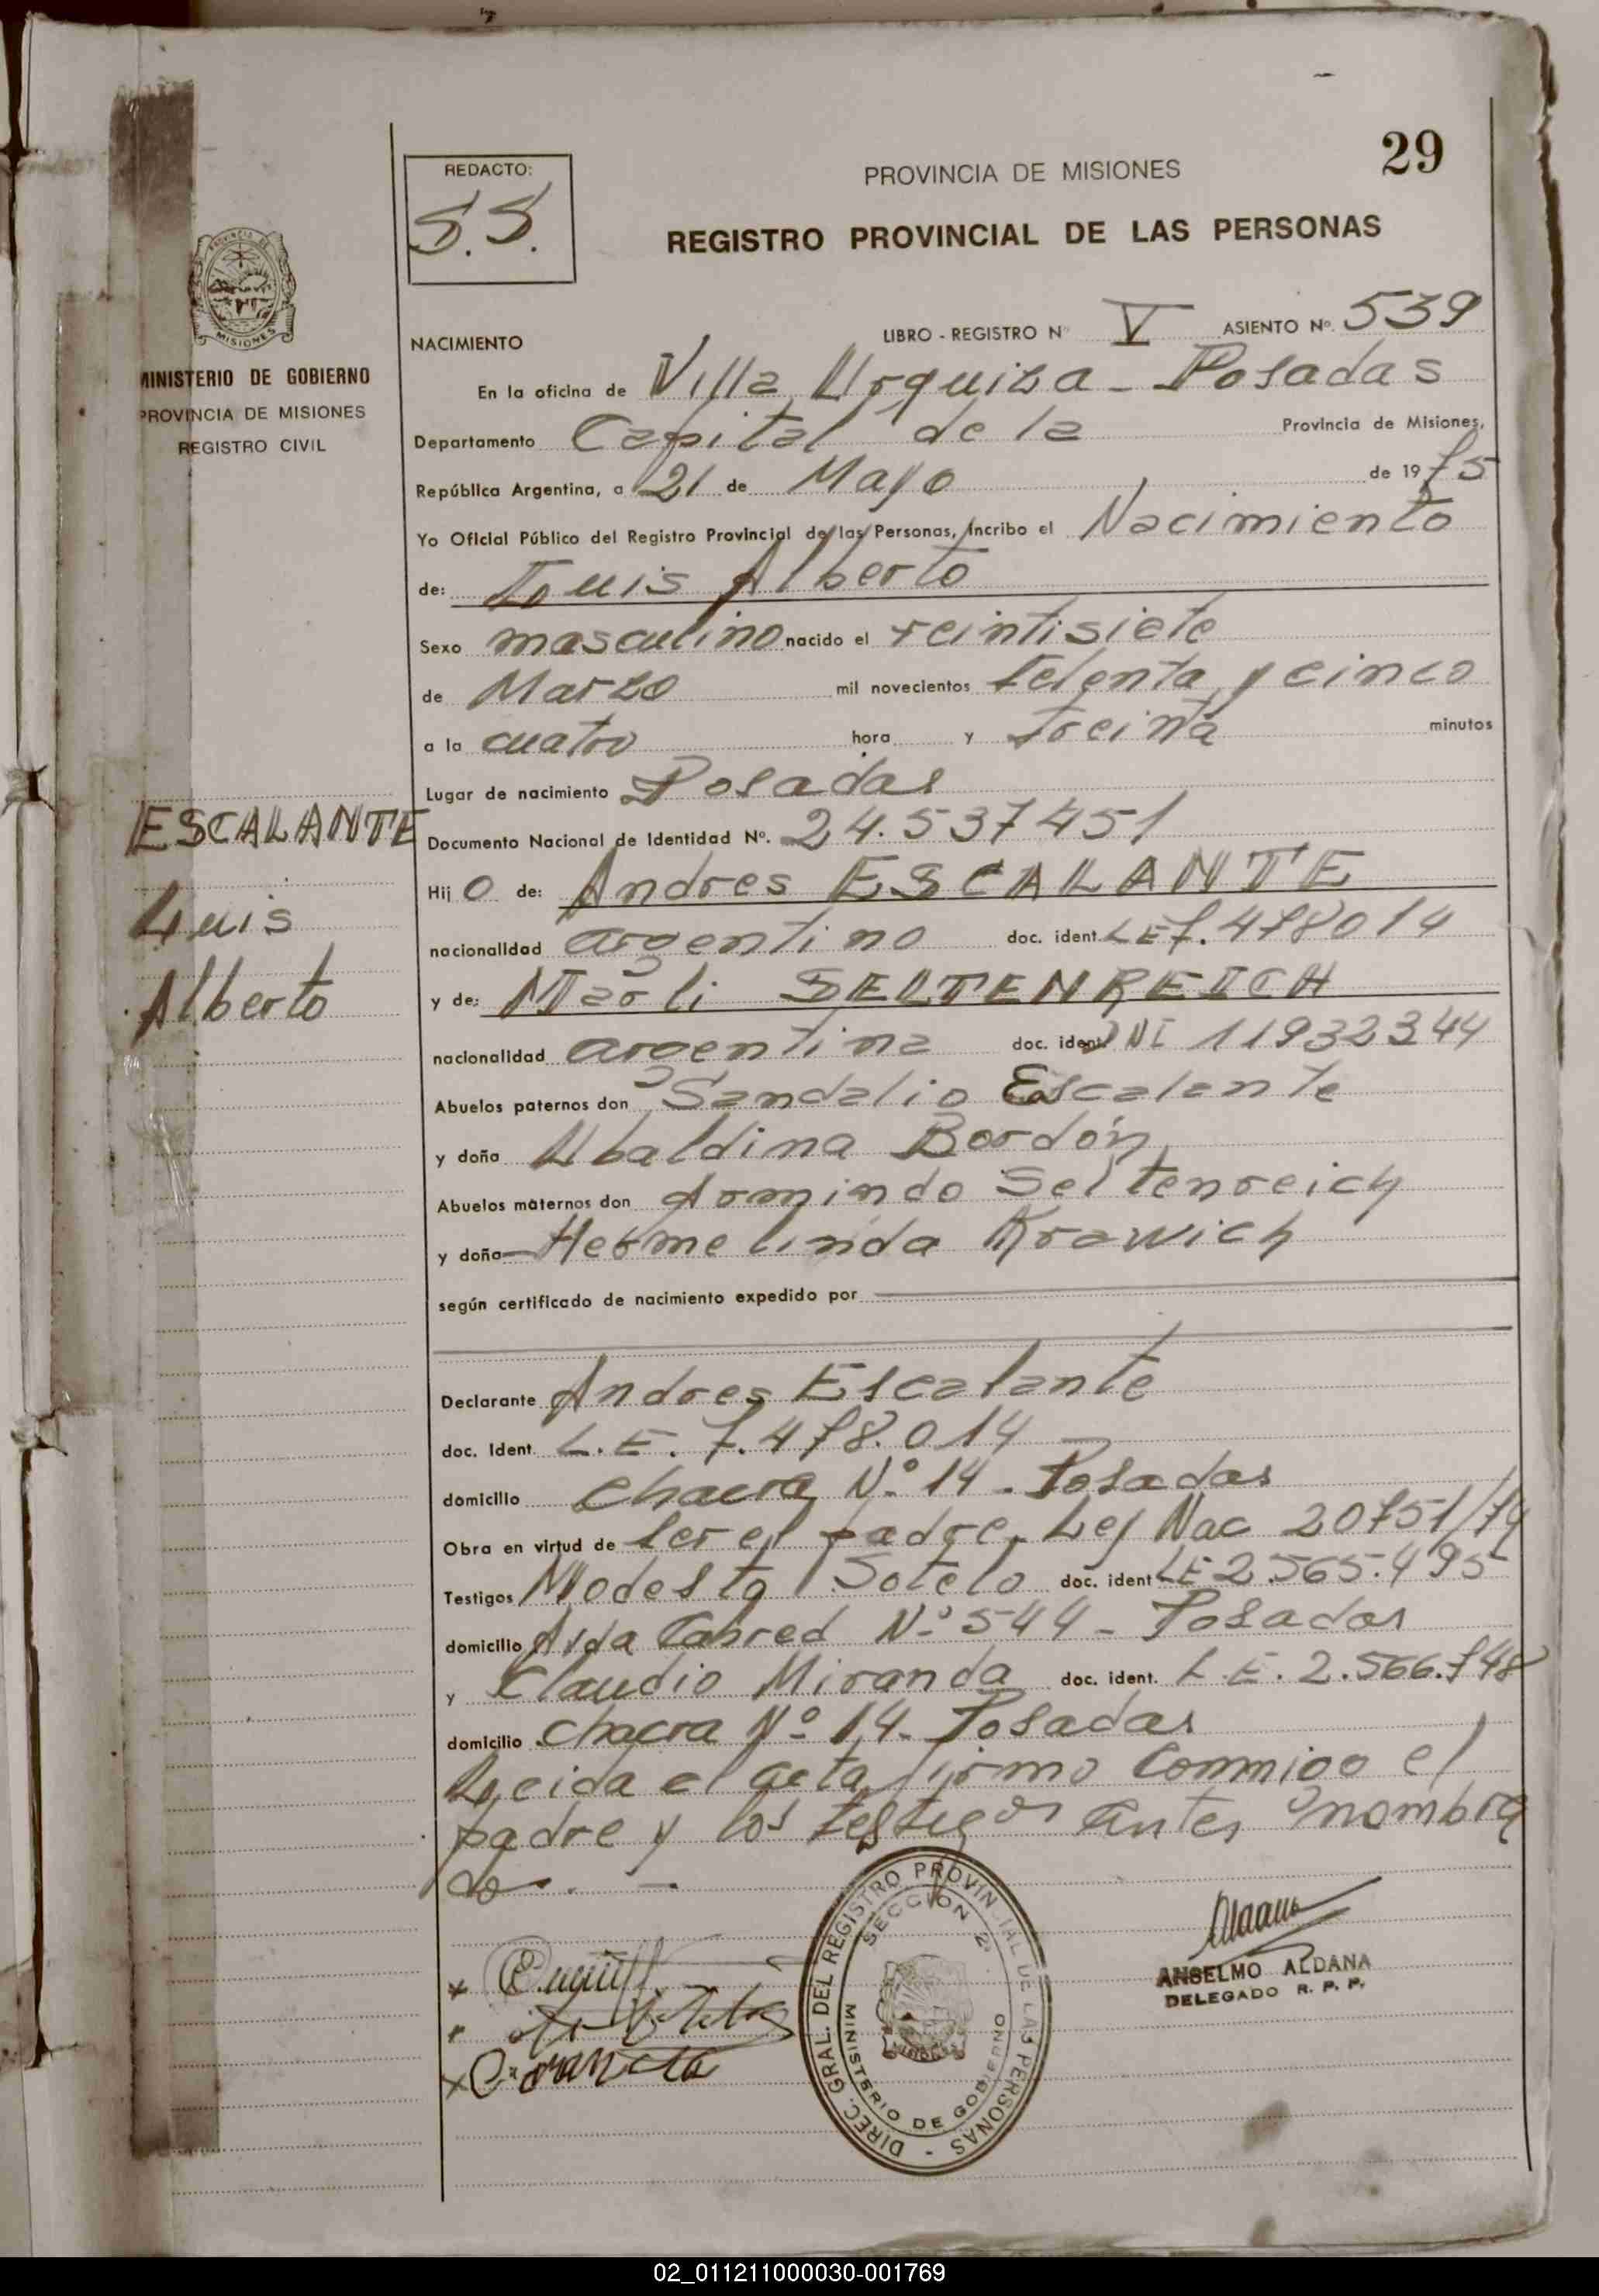 29
REDACTO:
S.S.
PROVINCIA DE MISIONES
REGISTRO PROVINCIAL DE LAS PERSONAS
MINISTERIO DE GOBIERNO
PROVINCIA DE MISIONES
REGISTRO CIVIL
NACIMIENTO LIBRO - REGISTRO Nº V ASIENTO Nº. 539
En la oficina de Villa Urquiza - Posadas
Departamento Capital de la Provincia de Misiones,
República Argentina, a 21 de Mayo de 1975
Yo Oficial Público del Registro Provincial de las Personas, incribo el Nacimiento
de: Luis Alberto
Sexo masculino nacido el veintisiete
de Marzo mil novecientos setenta y cinco
a la cuatro hora y treinta minutos
Lugar de nacimiento Posadas
Documento Nacional de Identidad Nº. 24.537451
ESCALANTE
Luis
Alberto
Hijo de: Andres ESCALANTE
nacionalidad argentino doc. ident. LE 7.478014
y de: Marli SELTENREICH
nacionalidad argentina doc. ident. DNI 11932344
Abuelos paternos don Sandalio Escalante
y doña Ubaldina Bordón
Abuelos maternos don Armindo Seltenreich
y doña Hermelinda Krawich
según certificado de nacimiento expedido por
Declarante Andres Escalante
doc. Ident. L.E. 7.478.014
domicilio Chacra Nº 14 - Posadas
Obra en virtud de ser el padre. Ley Nac 20751/74
Testigos Modesto Sotelo doc. ident LE 2.565.495
domicilio Cabred Nº 544 - Posadas
y Claudio Miranda doc. ident. L.E. 2.566.748
domicilio Chacra Nº 14 - Posadas
Leida el acta firmo conmigo el
padre y los testigos antes nombra
do. -
DIREC. GRAL. DEL REGISTRO PROVINCIAL DE LAS PERSONAS -
SECCION 2ª
MINISTERIO DE GOBIERNO
MISIONES
ANSELMO ALDANA
DELEGADO R. P. P.
02_011211000030-001769